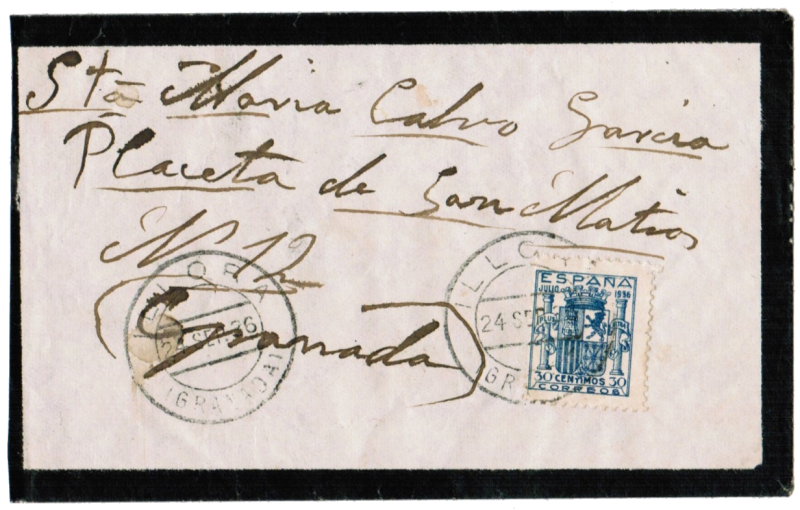 Sta Maria Calvo Garcia
Placeta de San Matias
Nº 12
Granada
ILLORA
24 SEP 36
(GRANADA)
ILLORA
24 SEP
GR
ESPAÑA
JULIO 1936
PLUS
30 CENTIMOS 30
CORREOS